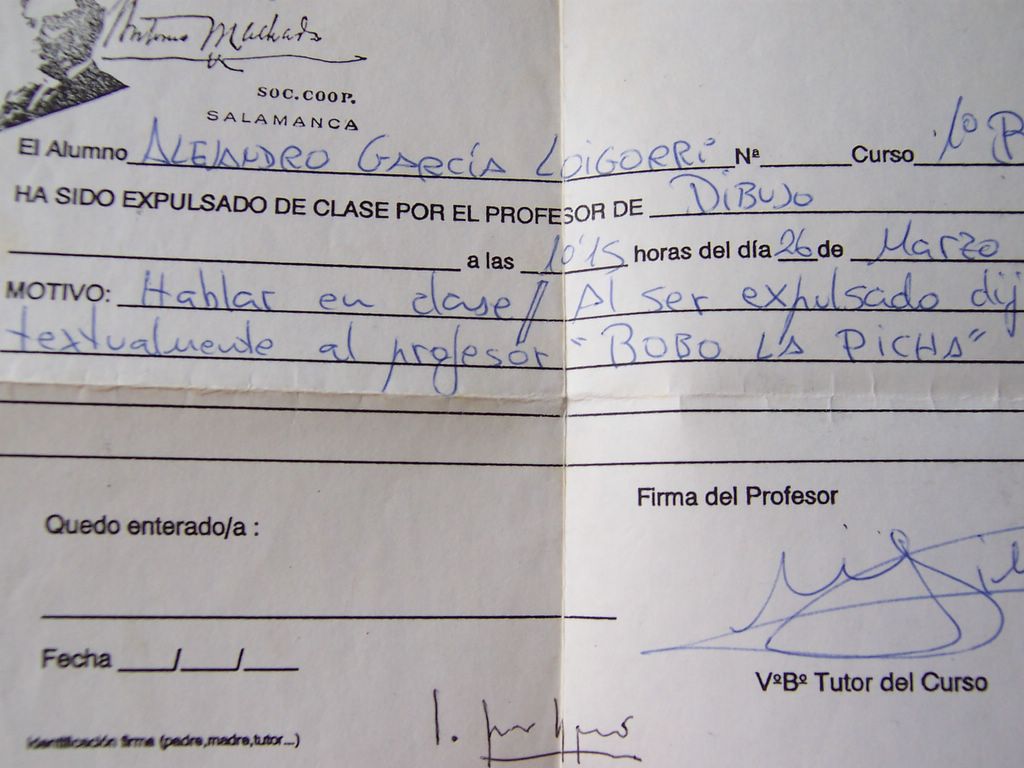 Antonio Machado
SOC. COOP.
SALAMANCA
El Alumno ALEJANDRO GARCÍA LOIGORRI Nª ______ Curso 1º B
HA SIDO EXPULSADO DE CLASE POR EL PROFESOR DE DIBUJO
a las 10'15 horas del día 26 de Marzo
MOTIVO: Hablar en clase // Al ser expulsado dij
textualmente al profesor "BOBO LA PICHA"
Firma del Profesor
Quedo enterado/a :
Fecha ___/___/___
VºBº Tutor del Curso
Identificación firma (padre,madre,tutor...)